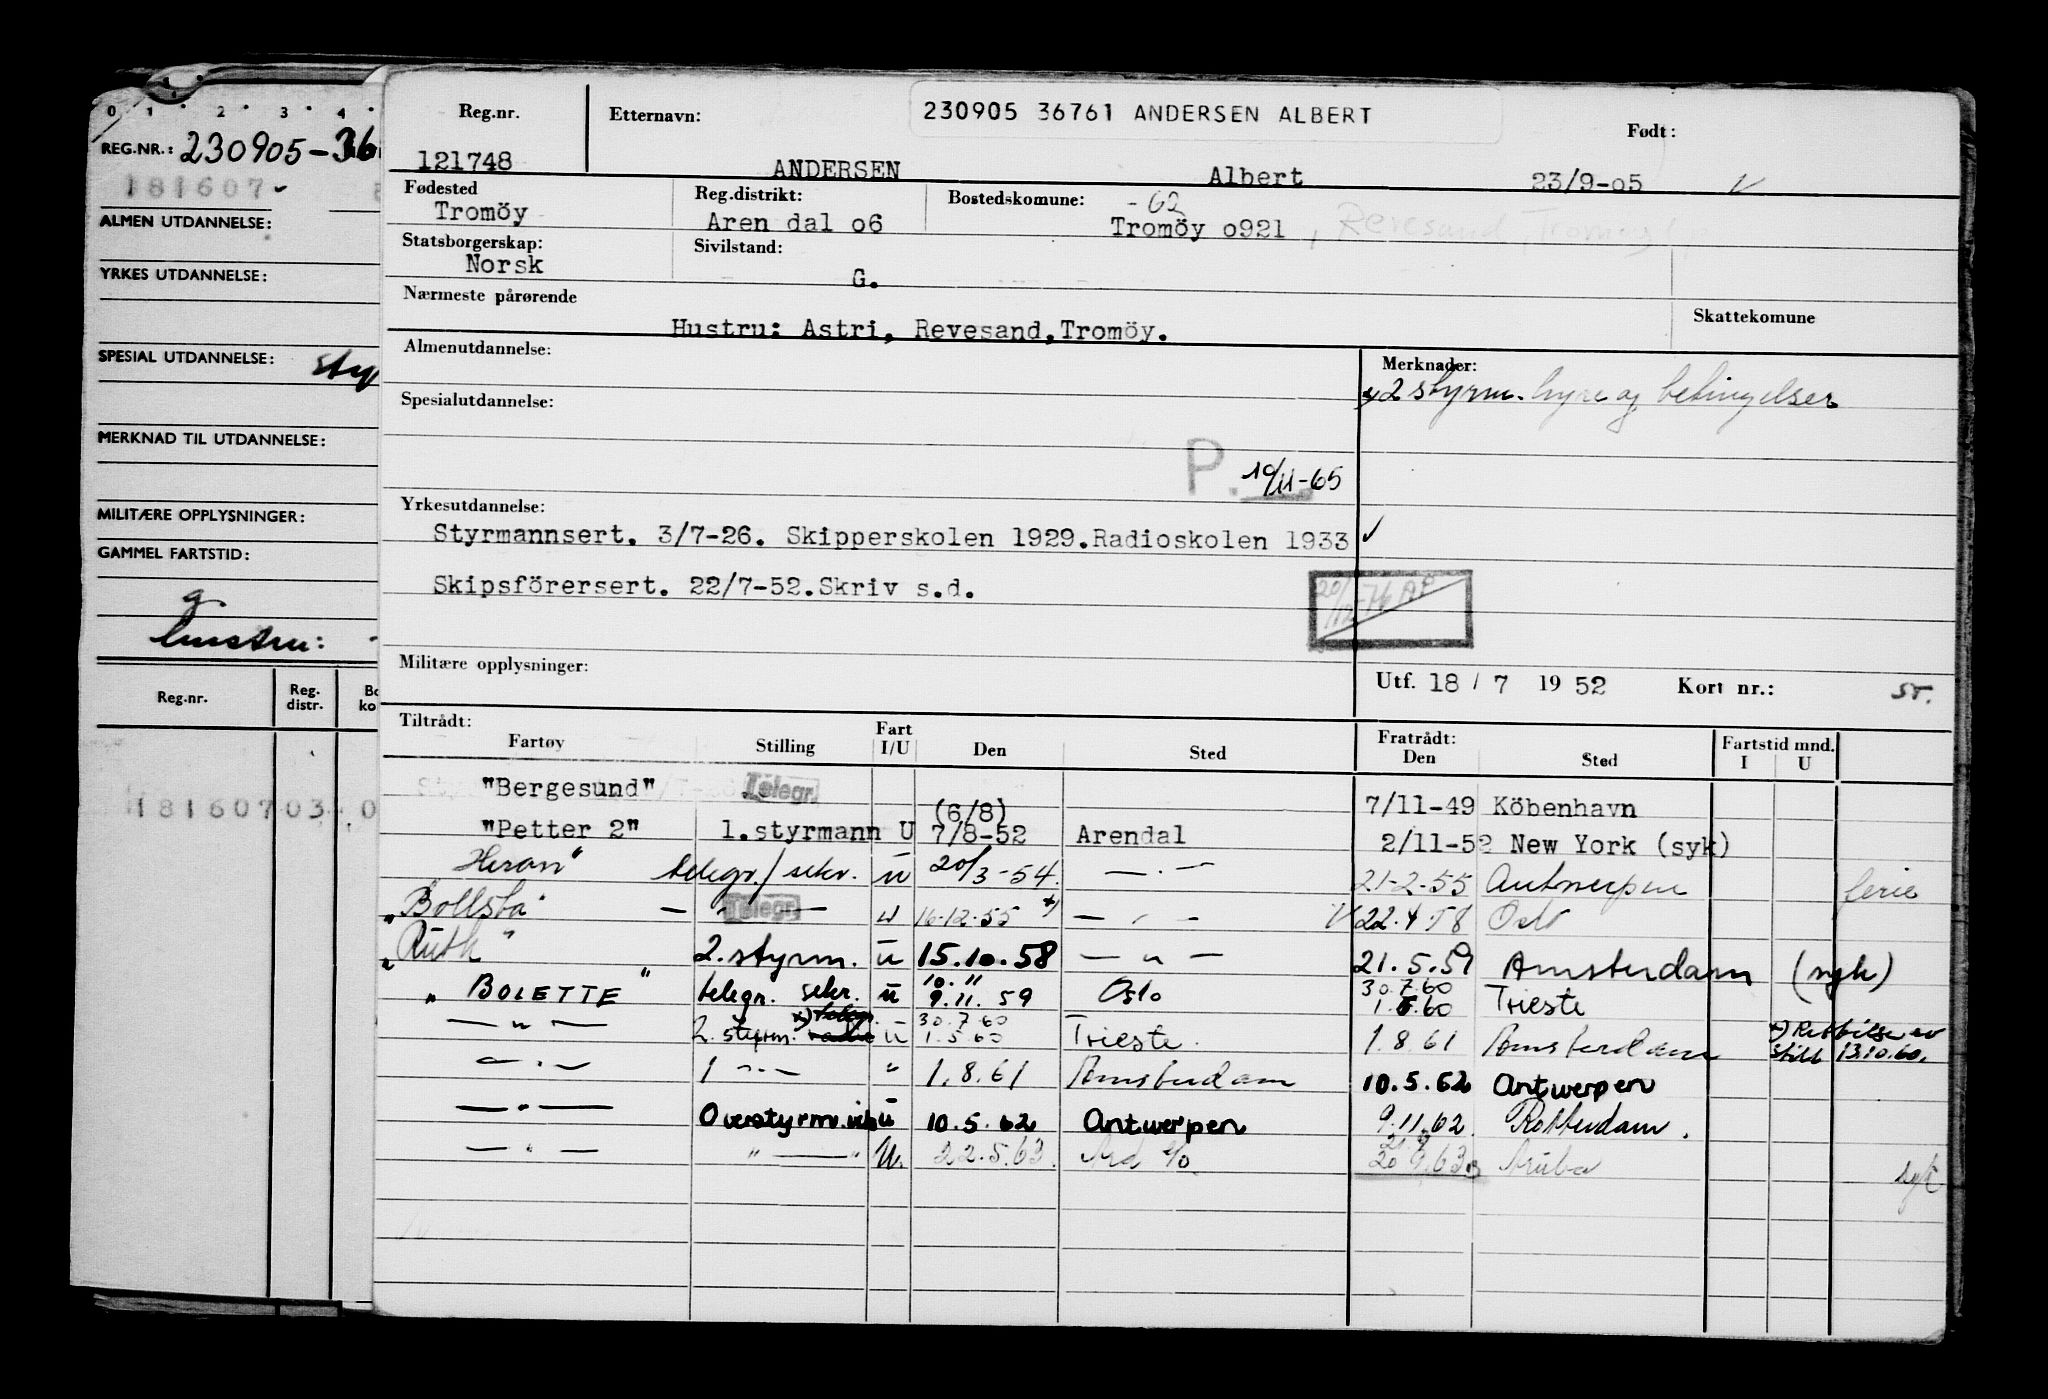 0 1 2 3 4
REG.NR.: 230905-36
181607
ALMEN UTDANNELSE:
YRKES UTDANNELSE:
SPESIAL UTDANNELSE: sty
MERKNAD TIL UTDANNELSE:
MILITÆRE OPPLYSNINGER:
GAMMEL FARTSTID:
g.
hustru:
Reg.nr. Reg. distr. Bo ko
181607 03 0
Reg.nr. Etternavn: 230905 36761 ANDERSEN ALBERT Født:
121748 ANDERSEN Albert 23/9-05
Fødested Reg.distrikt: Bostedskomune: -62
Tromöy Aren dal 06 Tromöy 0921, Revesand, Tromøy
Statsborgerskap: Sivilstand:
Norsk G.
Nærmeste pårørende Skattekomune
Hustru: Astri, Revesand,Tromöy.
Almenutdannelse: Merknader:
x) 2 styrm. hyre og betingelser
Spesialutdannelse:
P. 19/11-65
Yrkesutdannelse:
Styrmannsert. 3/7-26. Skipperskolen 1929.Radioskolen 1933
Skipsförersert. 22/7-52.Skriv s.d.
20/12-76 AP
Militære opplysninger: Utf. 18 / 7 19 52 Kort nr.: sr.
Tiltrådt: Fratrådt: Fartstid mnd.
Fartøy Stilling Fart I/U Den Sted Den Sted I U
"Bergesund" Telegr. 7/11-49 Köbenhavn
(6/8)
"Petter 2" 1.styrmann U 7/8-52 Arendal 2/11-52 New York (syk)
"Heron" telegr./sekr. u 20/3-54. — " — 21-2-55 Antwerpen ferie
"Bollsta" — " — Telegr. u 16-12-55 x) — " — 22.4.58 Oslo
"Ruth" 2.styrm. u 15.10.58 — " — 21.5.59 Amsterdam (syk)
10.11 30.7.60
"BOLETTE" telegr. sekr. u 9.11.59 Oslo 1.5.60 Trieste
x) 30.7.60
— " — 2. styrm. u 1.5.60 Trieste. 1.8.61 Amsterdam x) Rettelse av still 13.10.60.
— " — 1 — " — " 1.8.61 Amsterdam 10.5.62 Antwerpen
— " — Overstyrm. u 10.5.62 Antwerpen 9.11.62. Rotterdam.
— " — " — " U. 22.5.63. 20 9.63 Aruba syk